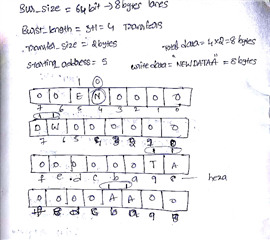 Bus_size = 64 bit → 8 bytes lanes
Burst_length = 3+1 = 4 Transfers
Transfer_size = 2 bytes
total data = 4x2 = 8 bytes
starting address = 5
write data = "NEWDATAA" = 8 bytes
1 0
0 0 E N 0 0 0 0
7 6 5 4 3 2 1 0
0 W 0 0 0 0 0 0
7 6 5 4 3 2
0 0 0 0 0 0 T A
f e d c b a 9 8
hexa
0 0 0 0 A A 0 0
b a 9 8